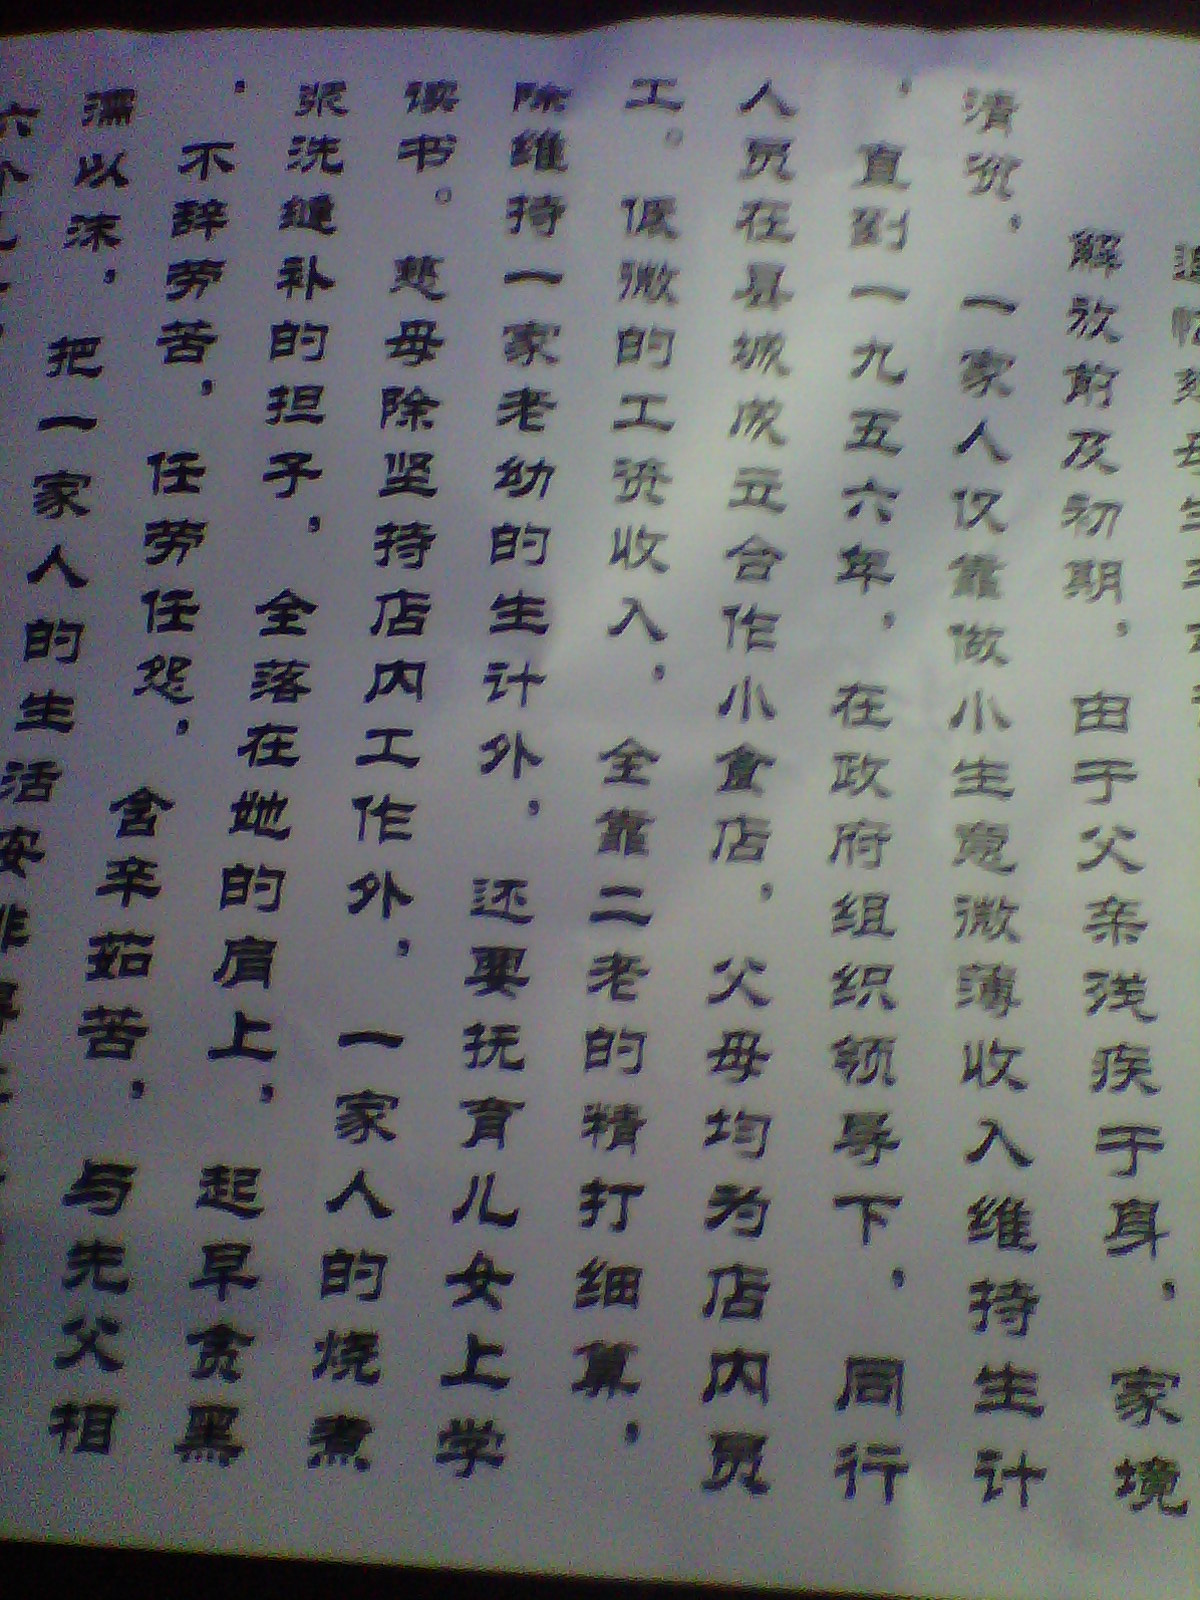 解放前及初期，由于父亲浅疾于身，家境
清贫，一家人仅靠做小生意微薄收入维持生计
，直到一九五六年，在政府组织领导下，同行
人员在县城成立合作小食店，父母均为店内员
工。低微的工资收入，全靠二老的精打细算，
除维持一家老幼的生计外，还要抚育儿女上学
读书。慈母除坚持店内工作外，一家人的烧煮
浆洗缝补的担子，全落在她的肩上，起早贪黑
，不辞劳苦，任劳任怨，含辛茹苦，与先父相
濡以沫，把一家人的生活安排得